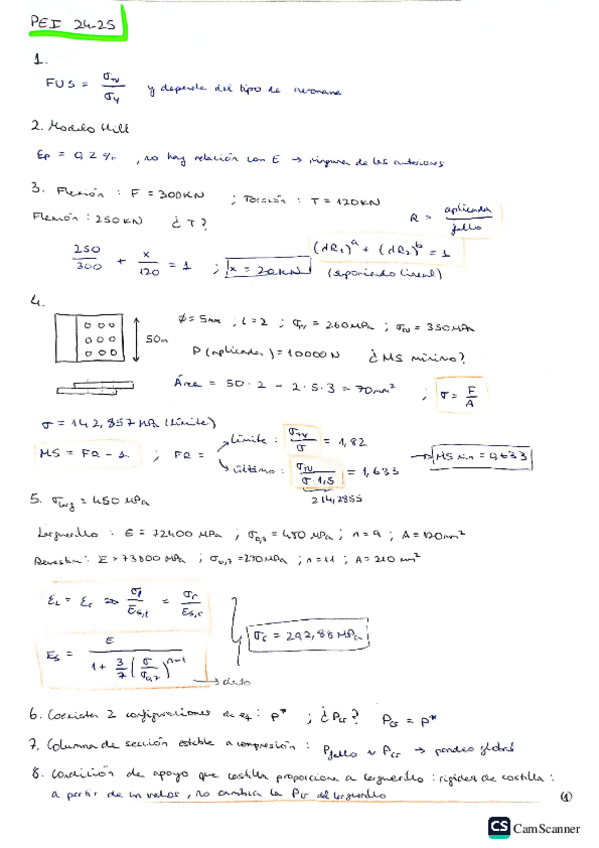 PEI 24-25
1.
FUS = σTU / σY y depende del tipo de
2. Modelo Hill
Ep = 0,2 %, no hay relación con E → ninguna de las anteriores
3. Flexión : F = 300KN ; Torsión : T = 120KN
Flexión : 250KN ¿T?
R = aplicada / fallo
250/300 + x/120 = 1 ; x = 20KN
(dR1)^a + (dR2)^b = 1
(suponiendo lineal)
4.
Φ = 5mm ; t = 2 ; σTY = 260MPa ; σTU = 350MPa
50m
P (aplicada) = 10000N ¿MS mínimo?
Área = 50 · 2 - 2 · 5 · 3 = 70mm² ; σ = F/A
σ = 142,857 MPa (límite)
MS = FR - 1 ; FR =
límite : σTY / σ = 1,82
último : σTU / σ · 1,5 = 1,633
→ MS min = 0,633
214,2855
5. σlarg = 450 MPa
Larguerillo : E = 72400 MPa ; σ0,7 = 480 MPa ; n = 9 ; A = 120mm²
E = 73800 MPa ; σ0,7 = 290 MPa ; n = 11 ; A = 210 mm²
εL = εr ⇒ σl / Es,l = σr / Es,r
σr = 292,88 MPa
Es = E / 1 + 3/7 (σ/σ0,7)^n-1
→ dato
6. 2 configuraciones de eq : P* ; ¿Pcr? Pcr = P*
7. Columna de sección estable a compresión : Pfallo ~ Pcr → pandeo global
8. Condición de apoyo que costilla proporciona a larguerillo : rigidez de costilla :
a partir de un valor, no cambia la Pcr del larguerillo
(1)
CS CamScanner